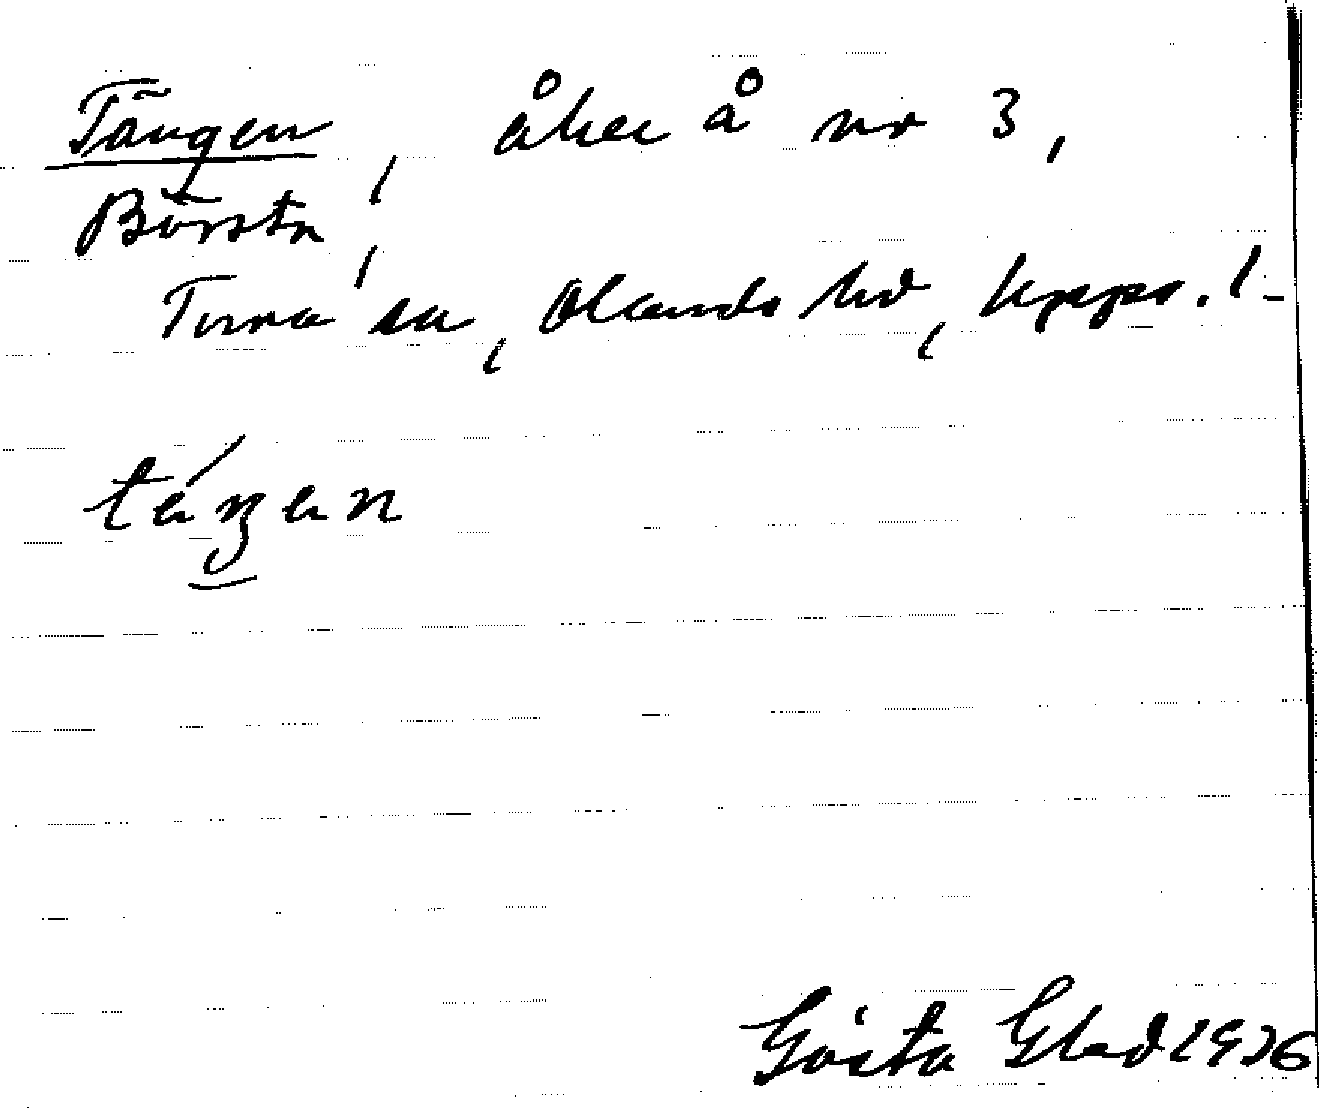 Tängen, åker å nr 3,
Börsta,
Tuna sn, Olands hd, Upps. l.
táŋen
Gösta Glad 1926